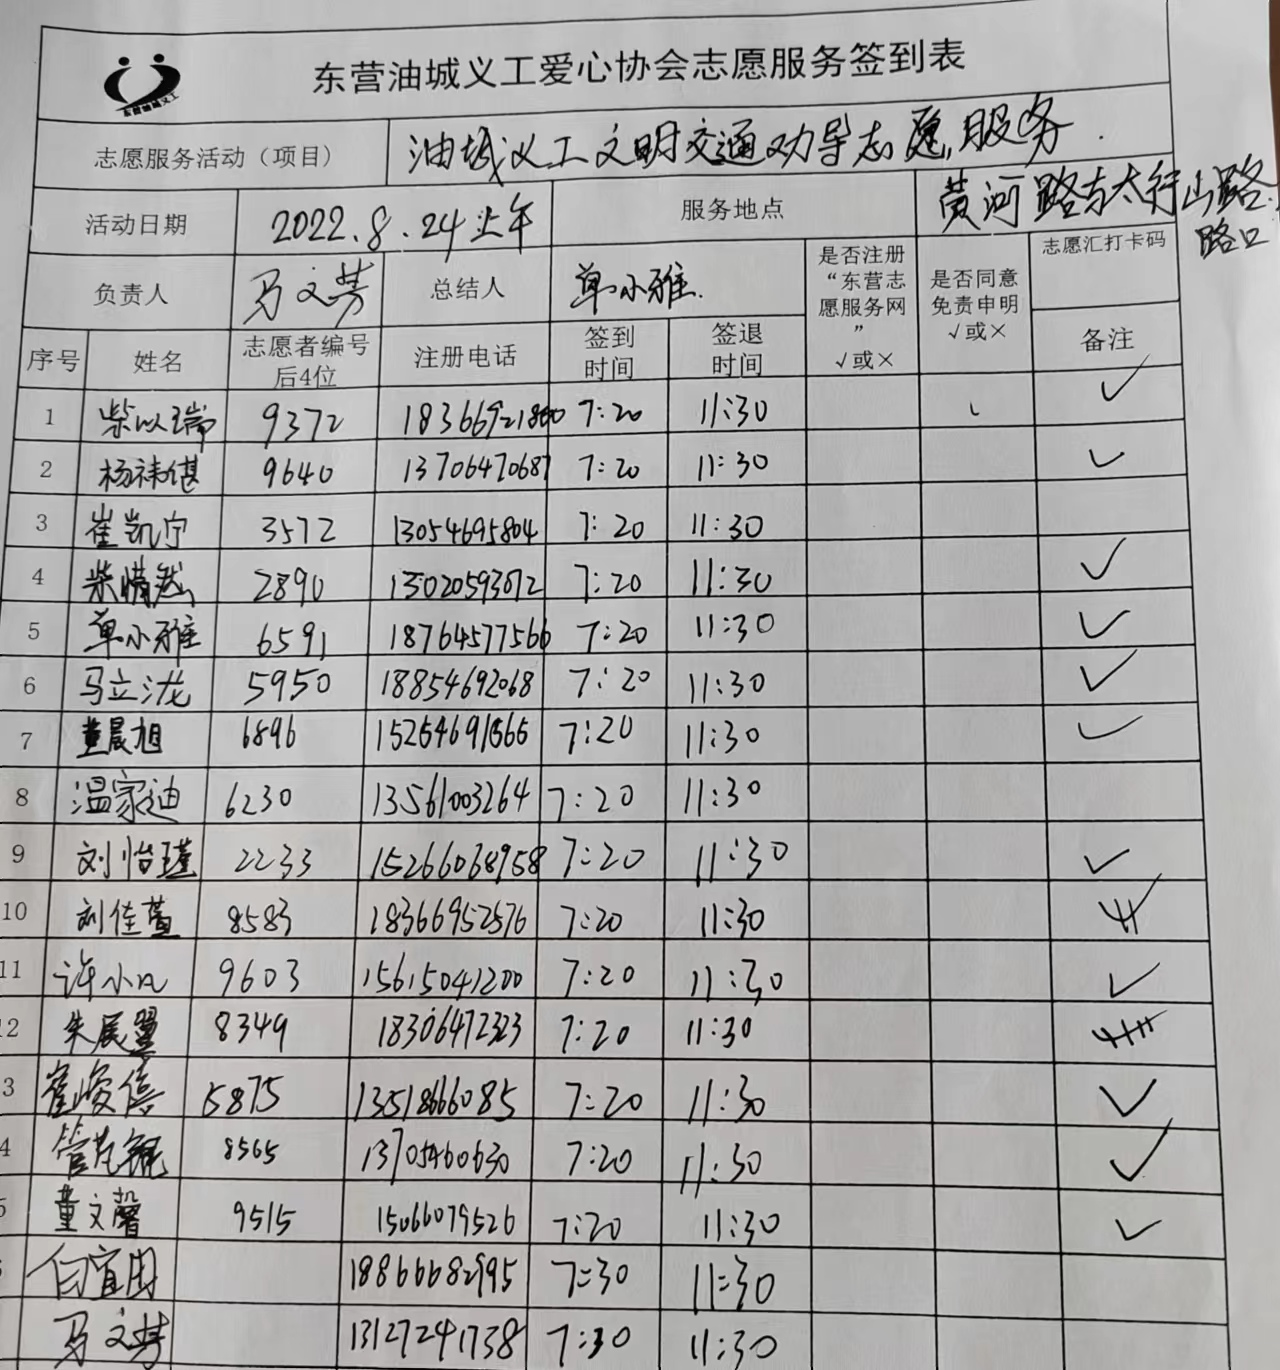 东营油城义工爱心协会志愿服务签到表
东营油城义工
志愿服务活动（项目） 油城义工文明交通劝导志愿服务.
活动日期 2022.8.24上午 服务地点 黄河路与太行山路
路口
负责人 马文芳 总结人 单小雅. 是否注册“东营志愿服务网” √或× 是否同意免责申明 √或× 志愿汇打卡码
序号 姓名 志愿者编号后4位 注册电话 签到时间 签退时间 备注
1 柴以瑞 9372 18366921800 7:20 11:30 ✓
2 杨祎偡 9640 13706470687 7:20 11:30 ✓
3 崔凯宁 3572 13054695804 7:20 11:30
4 柴情然 2890 13020593072 7:20 11:30 ✓
5 单小雅 6591 18764577566 7:20 11:30 ✓
6 马立泷 5950 18854692068 7:20 11:30 ✓
7 董晨旭 6896 15254691565 7:20 11:30 ✓
8 温家迪 6230 13561003264 7:20 11:30
9 刘怡瑾 2233 15266068958 7:20 11:30 ✓
10 刘佳萱 8583 18366952576 7:20 11:30
11 许小凡 9603 15615041200 7:20 11:30 ✓
2 朱展翼 8349 18306472323 7:20 11:30
3 崔峻僖 5875 13518666085 7:20 11:30 ✓
4 管 8565 13705460630 7:20 11:30 ✓
5 董文馨 9515 15066079526 7:20 11:30 ✓
白宜用 18866682995 7:30 11:30
马文芳 13127241738 7:30 11:30